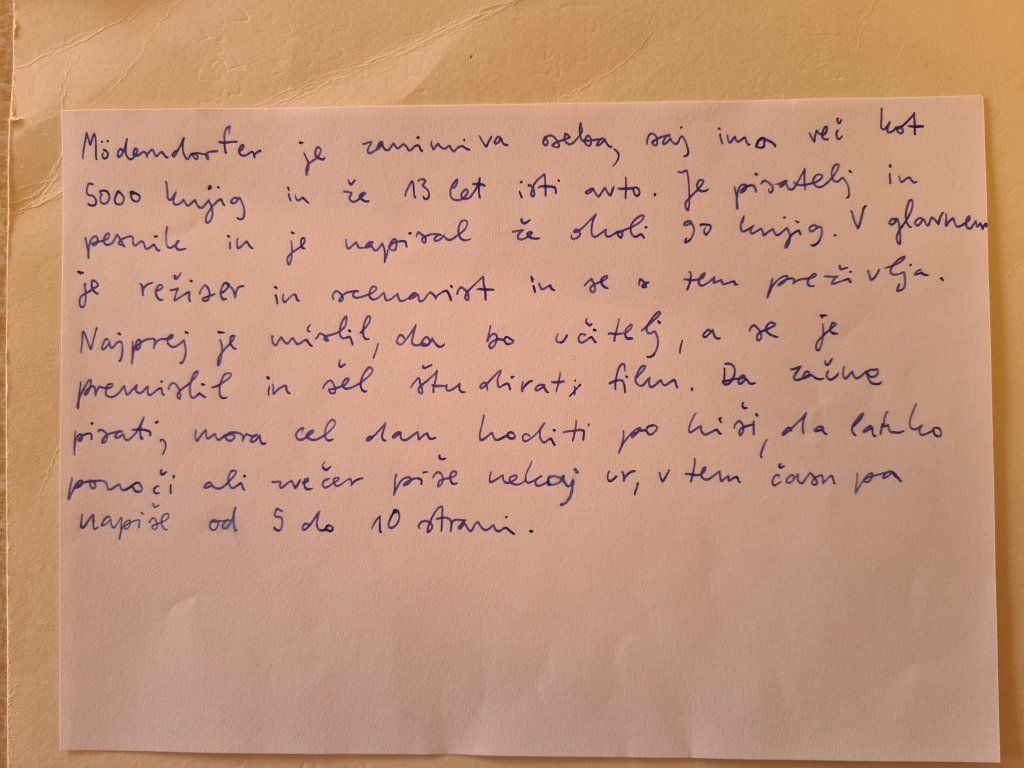 Möderndorfer je zanimiva oseba, saj ima več kot
5000 knjig in že 13 let isti avto. Je pisatelj in
pesnik in je napisal že okoli 90 knjig. V glavnem
je režiser in scenarist in se s tem preživlja.
Najprej je mislil, da bo učitelj, a se je
premislil in šel študirati film. Da začne
pisati, mora cel dan hoditi po hiši, da lahko
ponoči ali zvečer piše nekaj ur, v tem času pa
napiše od 5 do 10 strani.